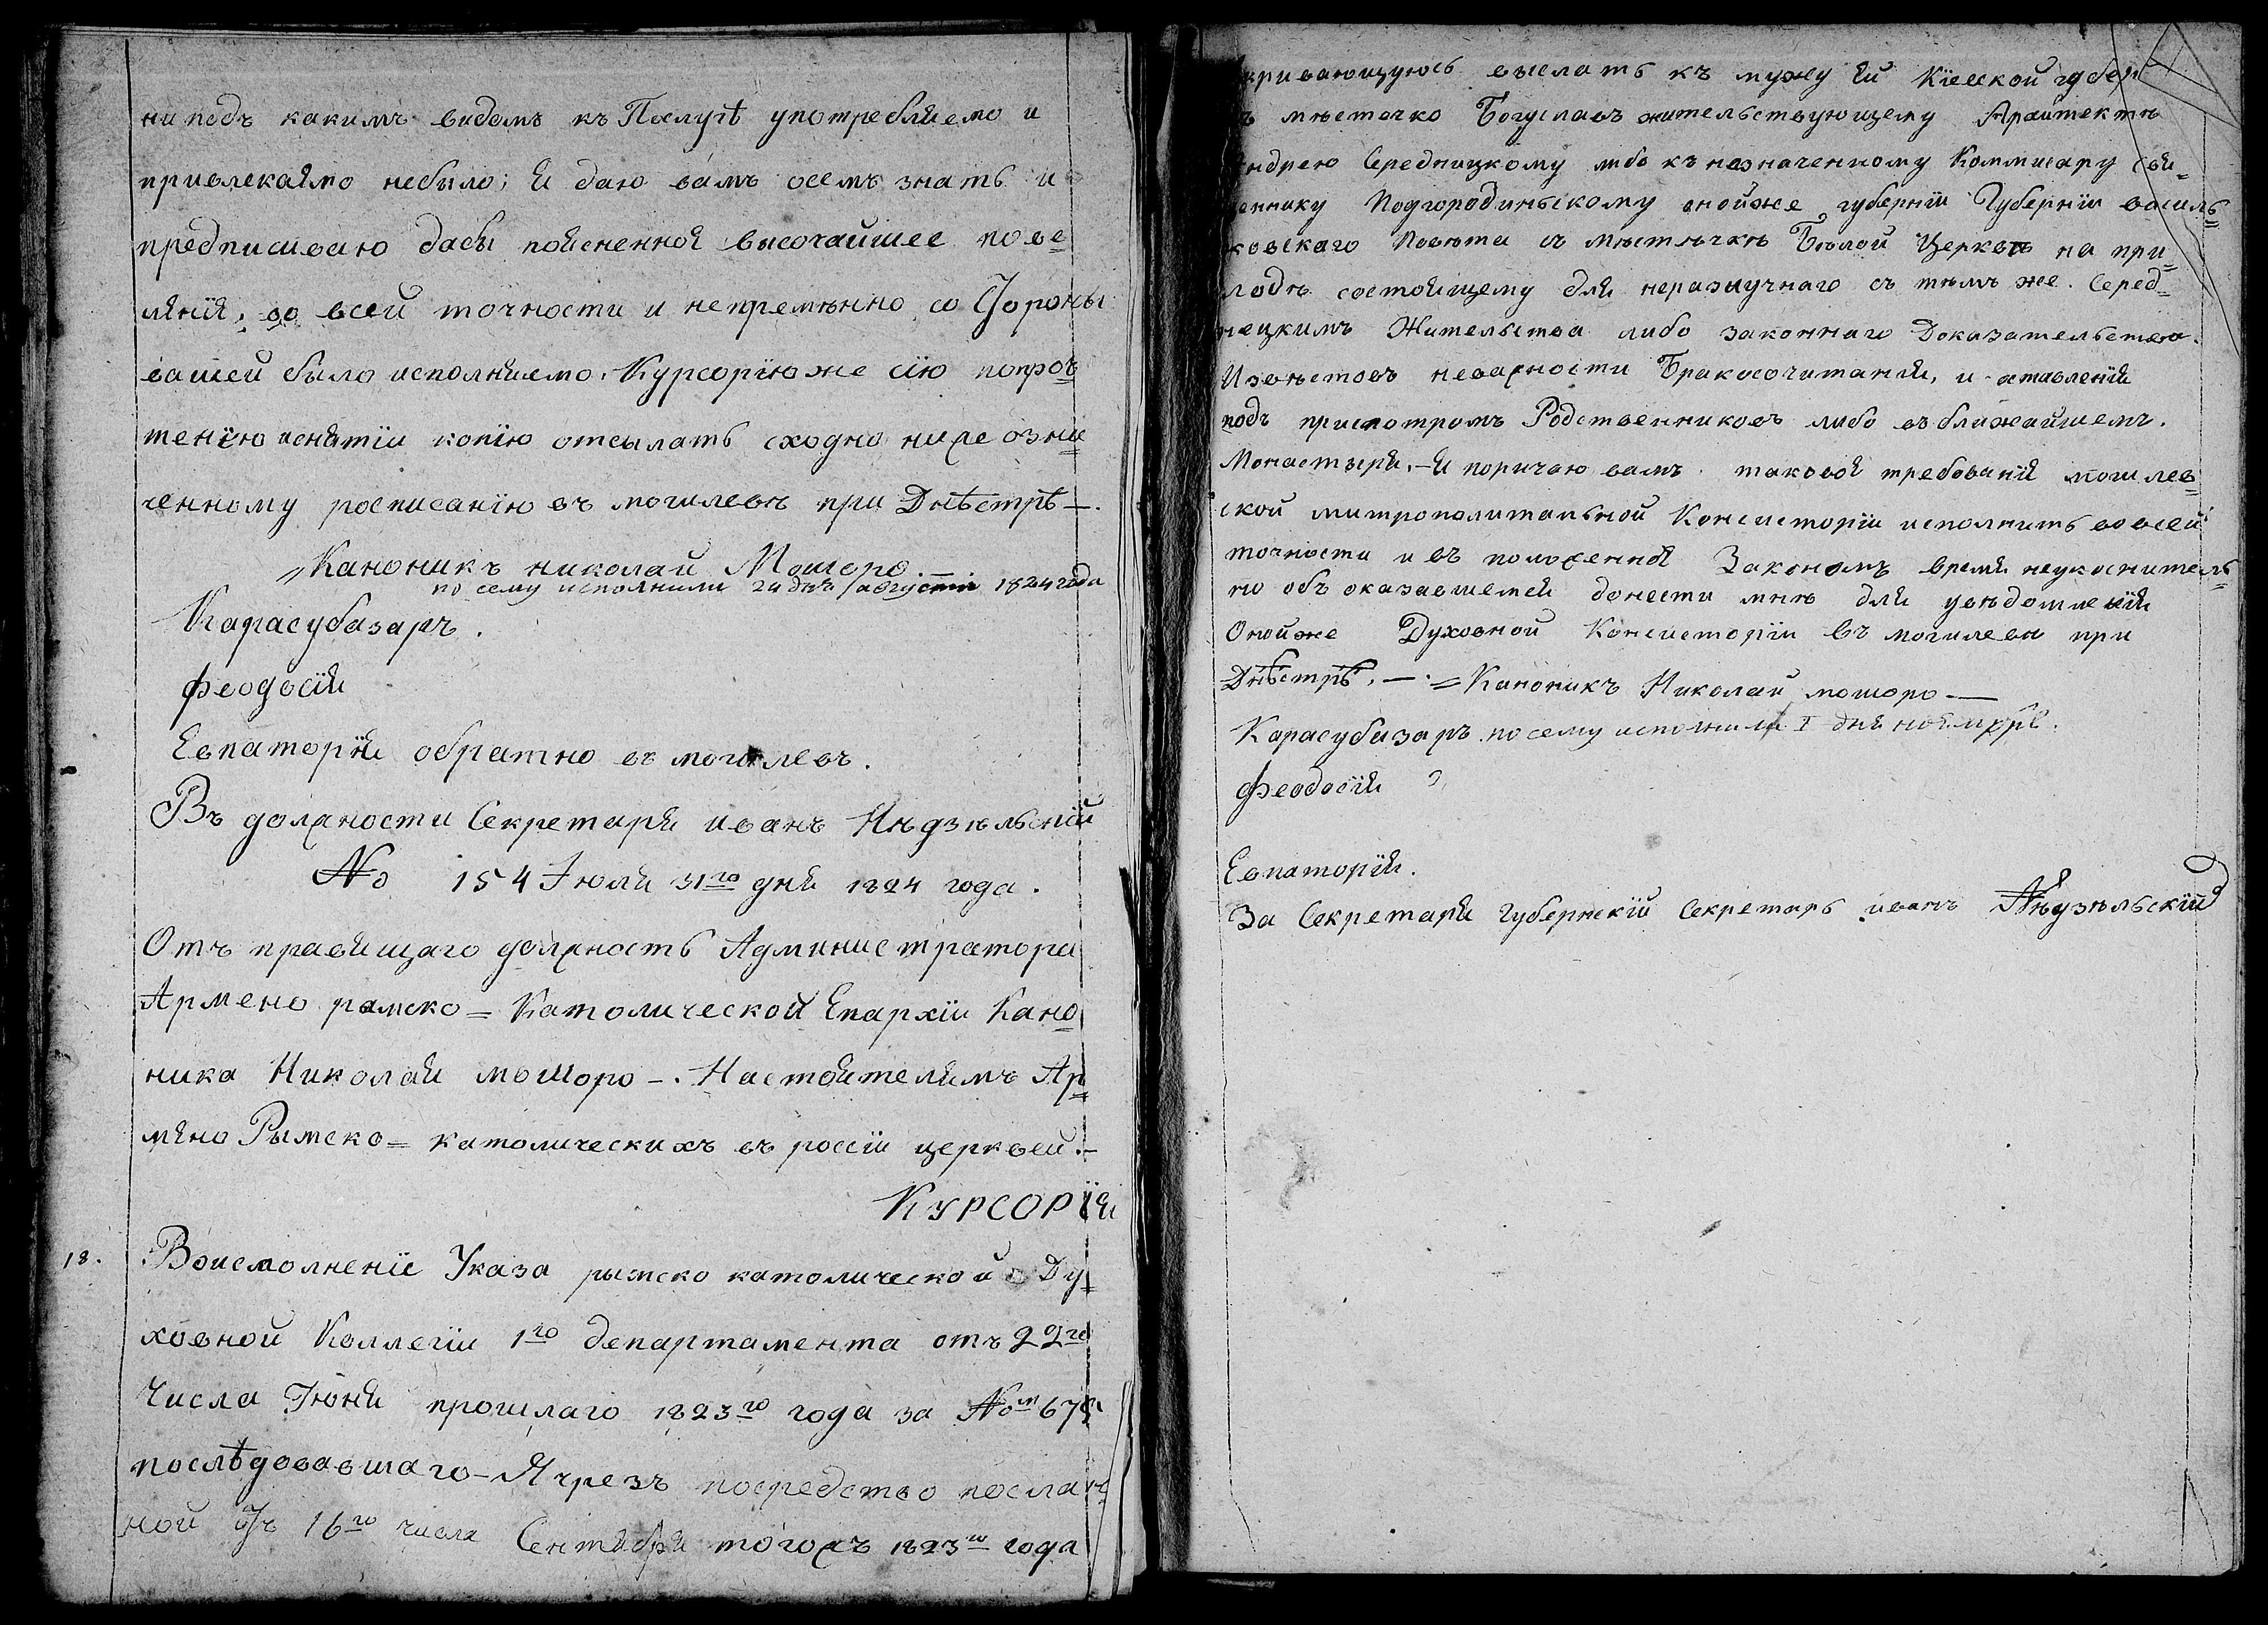 ниподъ какимъ видомъ къ Послугѣ употребляемо и
привлекаямо небыло; Я даю вамъ осемъ знать и
предписиваю дабы поясненноя высочайшее пове=
ляния, во всей точности и непремѣнно со Стороны
вашей было исполняемо. Курсорїю же сїю попроч=
тенїю иснятїи копїю отсылать сходно ниже озна=
ченному росписанїю въ могилевъ при Днѣстрѣ —.
„Каноникъ николай Мошоро
по сему исполнили 24 дня августа 1824 года
Карасубазаръ.
феодосїя
Евпаторїя обратно въ могилевъ.
Въ должности Секретаря иванъ Нѣдзѣльскїй
No 154 Іюля 31го дня 1824 года.
Отъ правящаго должность Администратора
Армено рымско= Католической Епархїи Кано=
ника Николая мошоро —. Настоятелямъ Ар=
мяно Рымско= католическихъ въ россїи церквей.—
КУРСОРЇЯ
18. Воисполненїе Указа рымско католической Ду=
ховной Коллегїи 1го департамента отъ 22го
Числа Іюня прошлаго 1823го года за Noм 675
послѣдовавшаго — Я чрезъ посредство послан=
ной отъ 16го числа Сентября тогожъ 1823го года
кривающуюсь выслать къ мужу Ей Кїевской губер
мѣстечко Богуславъ жительствующему Архитектѣ
ндрею Середницкому либо къ назначенному Коммисару свя=
щеннику Подгородинскому онойже губернїи Губернїи василь=
ковскаго Повѣта въ мѣстѣчкѣ Бѣлой Церквѣ на при=
ходѣ состоящему для неразлучнаго съ тѣмъ же Серед=
нецкимъ Жительства либо законнаго Доказательства.
Извѣстовъ неважности Бракосочитания, и оставленїя
подъ присмотромъ Родственниковъ либо въ ближайшемъ.
Монастыря. — Я поричаю вамъ таковоя требованїя могилев=
ской митрополитальной Консисторїи исполнить во всей
точности и въ положенноя Закономъ время неукоснитель=
но объ оказавшемся донести мнѣ для увѣдомленїя
Онойже Духовной Консисторїи въ могилевъ при
Днѣстрѣ. — . = Каноникъ Николай мошоро —
Карасубазаръ по сему исполнили 1 дня ноямбря.
феодосїя
Евпаторїя.
За Секретаря Губернскїй Секретарь иванъ Нѣдзѣльскїй